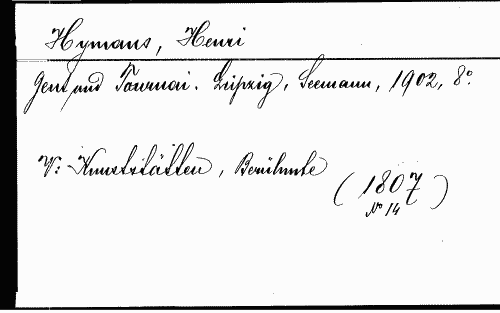 Hymans, Henri
Gent und Tournai. Leipzig, Seemann, 1902, 8°.
V: Kunststätten, Berühmte
(1807)
No 14